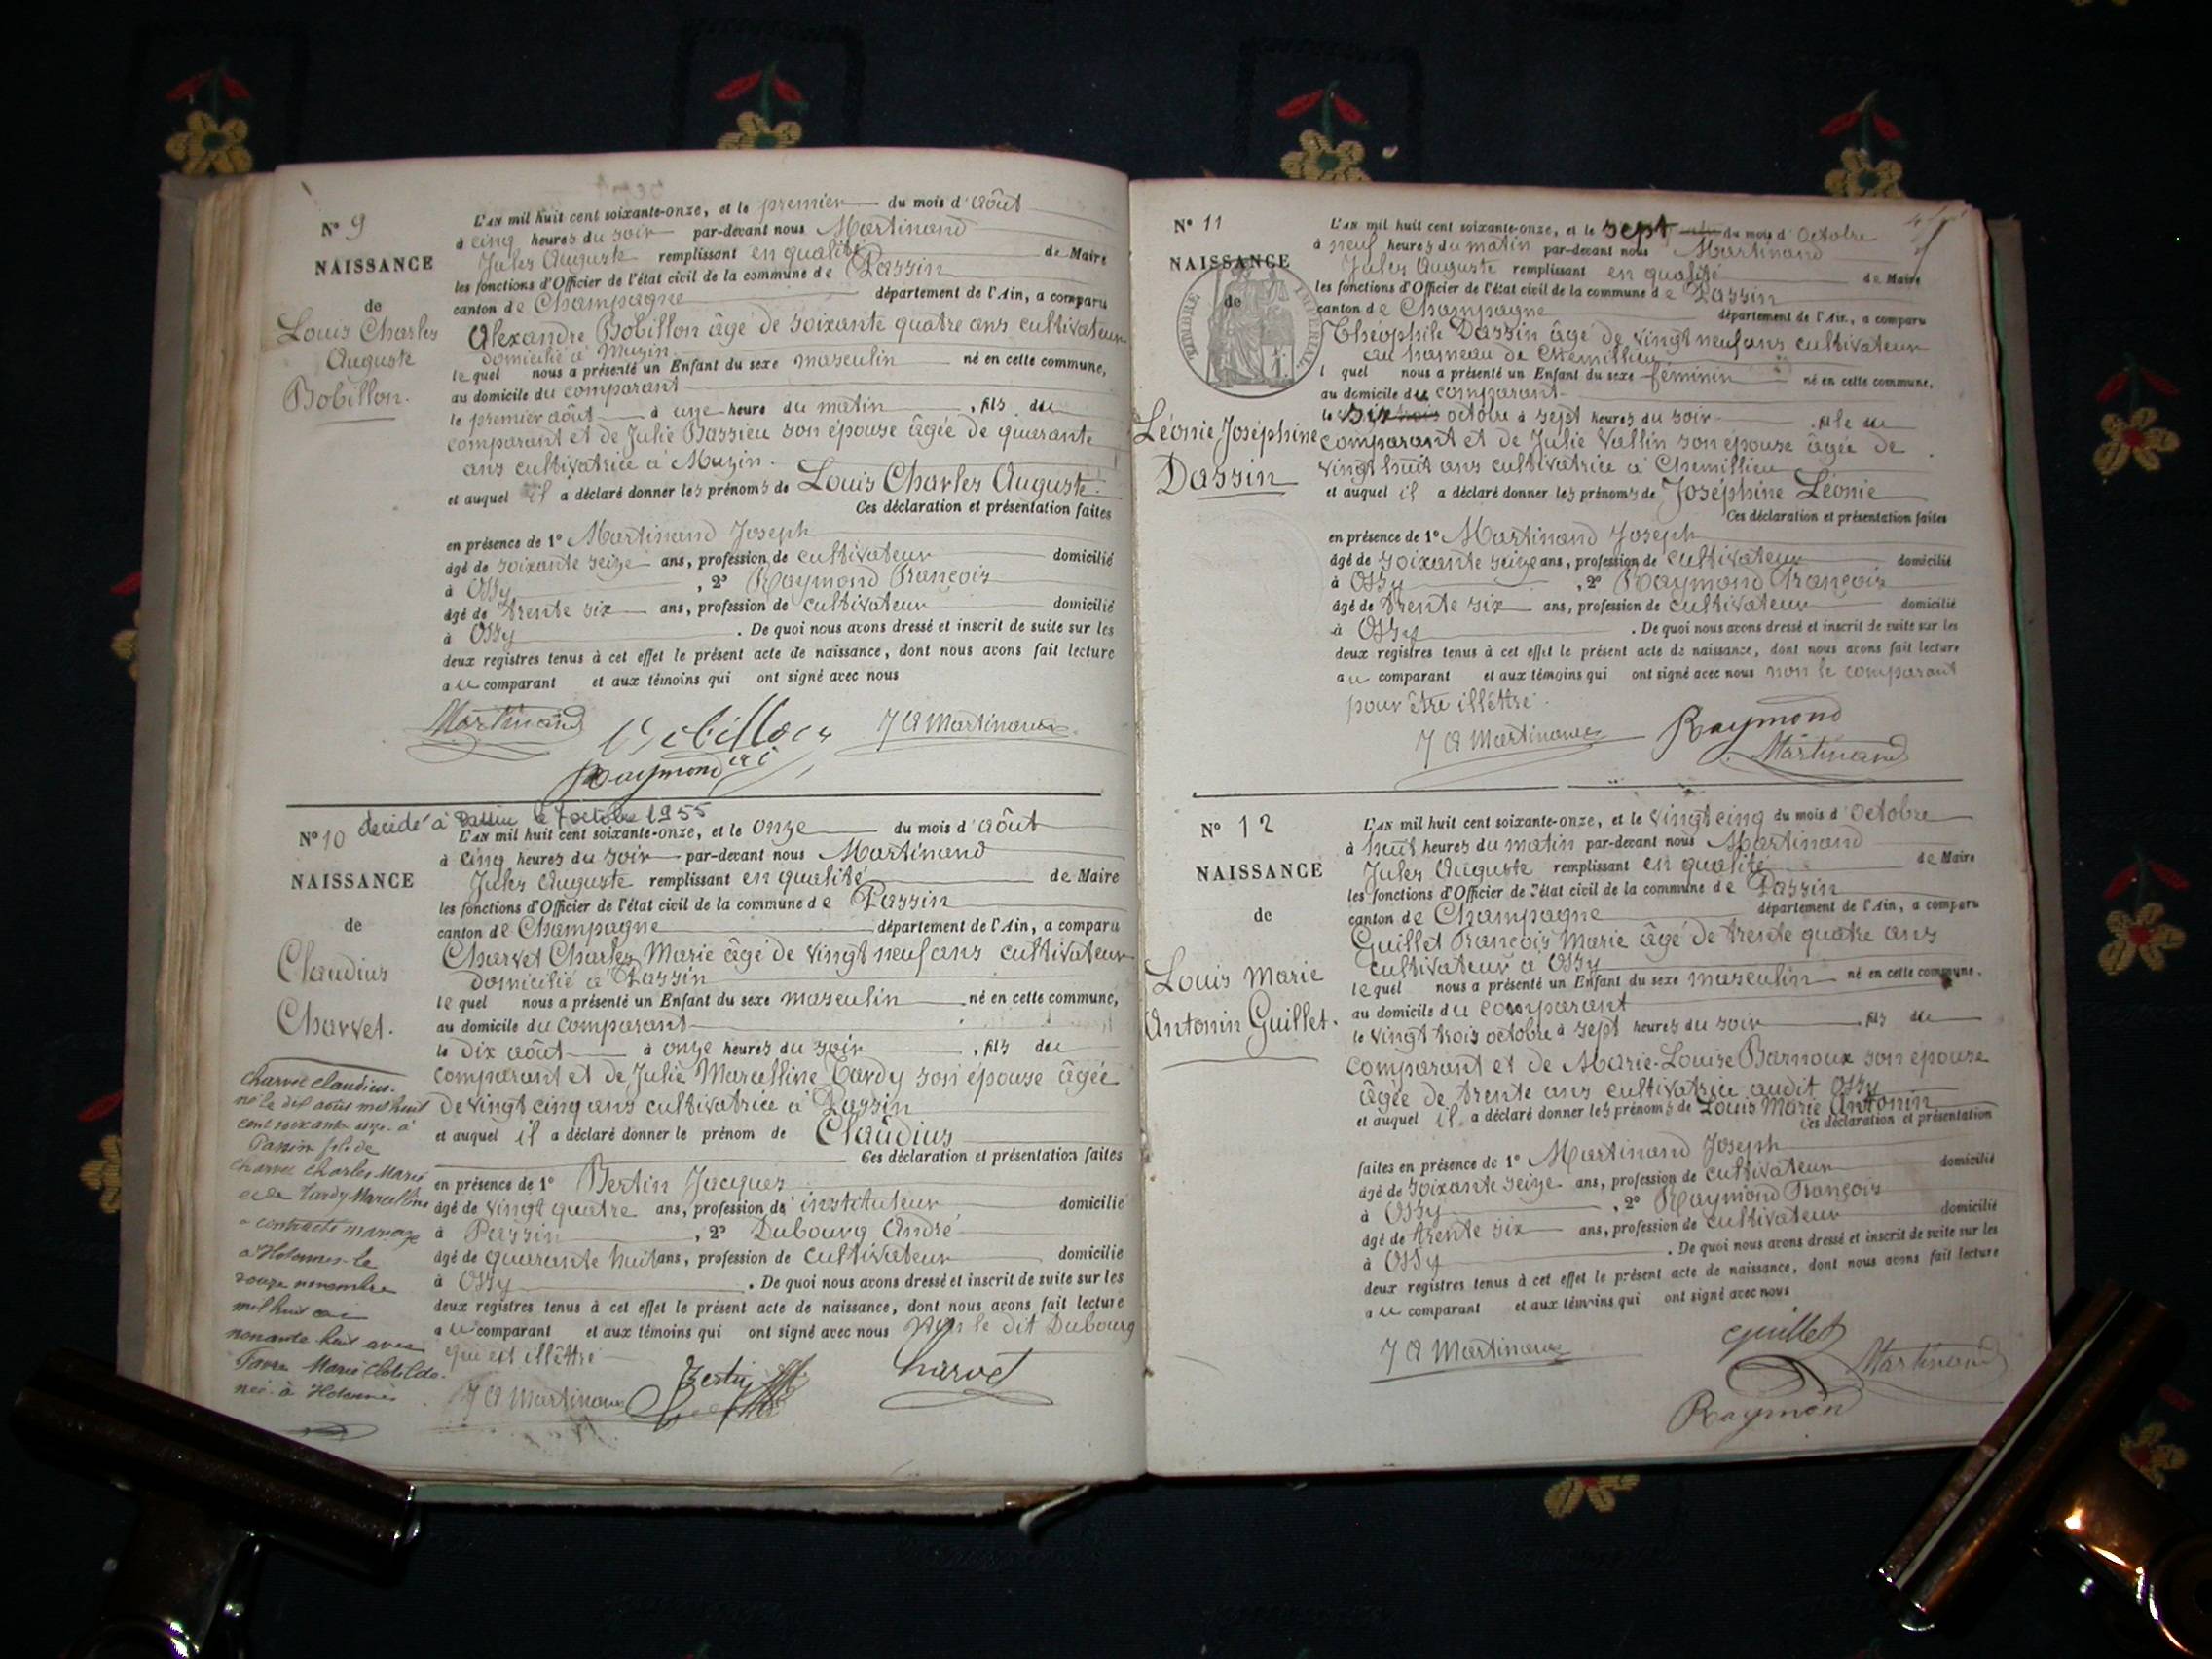 N° 9
NAISSANCE
de
Louis Charles
Auguste
Bobillon.
L'AN mil huit cent soixante-onze, et le premier du mois d'Août
à cinq heures du soir par-devant nous Martinand
Jules Auguste remplissant en qualité de Maire
les fonctions d'Officier de l'état civil de la commune de Passin
canton de Champagne département de l'Ain, a comparu
Alexandre Bobillon âgé de soixante quatre ans cultivateur
domicilié à Muzin.
lequel nous a présenté un Enfant du sexe masculin né en cette commune,
au domicile du comparant
le premier août à une heure du matin, fils du
comparant et de Julie Bassieu son épouse âgée de quarante
ans cultivatrice à Muzin.
et auquel il a déclaré donner les prénoms de Louis Charles Auguste.
Ces déclaration et présentation faites
en présence de 1° Martinand Joseph
âgé de soixante seize ans, profession de cultivateur domicilié
à Ossy, 2° Raymond François
âgé de trente six ans, profession de cultivateur domicilié
à Ossy. De quoi nous avons dressé et inscrit de suite sur les
deux registres tenus à cet effet le présent acte de naissance, dont nous avons fait lecture
au comparant et aux témoins qui ont signé avec nous
Martinand Bobillon J A Martinand
Raymond
décédé à Passin le 7 octobre 1955
N° 10
NAISSANCE
de
Claudius
Charvet.
Charvet Claudius.
né le dix août mil huit
cent soixante onze à
Passin fils de
Charvet Charles Marie
et de Tardy Marcelline
a contracté mariage
à Hotonnes le
douze novembre
mil huit cent
nonante huit avec
Favre Marie Clotilde.
née à Hotonnes
L'AN mil huit cent soixante-onze, et le onze du mois d'août
à cinq heures du soir par-devant nous Martinand
Jules Auguste remplissant en qualité de Maire
les fonctions d'Officier de l'état civil de la commune de Passin
canton de Champagne département de l'Ain, a comparu
Charvet Charles Marie âgé de vingt neuf ans cultivateur
domicilié à Passin
lequel nous a présenté un Enfant du sexe masculin né en cette commune,
au domicile du comparant
le dix août à onze heures du soir, fils du
comparant et de Julie Marcelline Tardy son épouse âgée
de vingt cinq ans cultivatrice à Passin
et auquel il a déclaré donner le prénom de Claudius
Ces déclaration et présentation faites
en présence de 1° Bertin Jacques
âgé de vingt quatre ans, profession d'instituteur domicilié
à Passin, 2° Dubourg André
âgé de quarante huit ans, profession de cultivateur domicilié
à Ossy. De quoi nous avons dressé et inscrit de suite sur les
deux registres tenus à cet effet le présent acte de naissance, dont nous avons fait lecture
au comparant et aux témoins qui ont signé avec nous non le dit Dubourg
qui est illéttré
J A Martinand Bertin Charvet
N° 11
NAISSANCE
de
TIMBRE IMPERIAL
Léonie Joséphine
Dassin
L'AN mil huit cent soixante-onze, et le sept du mois d'Octobre
à neuf heures du matin par-devant nous Martinand
Jules Auguste remplissant en qualité de Maire
les fonctions d'Officier de l'état civil de la commune de Passin
canton de Champagne département de l'Ain, a comparu
Théophile Dassin âgé de vingt neuf ans cultivateur
au hameau de Chemillieu
lequel nous a présenté un Enfant du sexe féminin né en cette commune,
au domicile du comparant
le six octobre à sept heures du soir, fille du
comparant et de Julie Vallin son épouse âgée de
vingt huit ans cultivatrice à Chemillieu
et auquel il a déclaré donner les prénoms de Joséphine Léonie
Ces déclaration et présentation faites
en présence de 1° Martinand Joseph
âgé de soixante seize ans, profession de cultivateur domicilié
à Ossy, 2° Raymond François
âgé de trente six ans, profession de cultivateur domicilié
à Ossy. De quoi nous avons dressé et inscrit de suite sur les
deux registres tenus à cet effet le présent acte de naissance, dont nous avons fait lecture
au comparant et aux témoins qui ont signé avec nous non le comparant
pour être illéttré.
J A Martinand Raymond
Martinand
N° 12
NAISSANCE
de
Louis Marie
Antonin Guillet.
L'AN mil huit cent soixante-onze, et le vingt cinq du mois d'Octobre
à huit heures du matin par-devant nous Martinand
Jules Auguste remplissant en qualité de Maire
les fonctions d'Officier de l'état civil de la commune de Passin
canton de Champagne département de l'Ain, a comparu
Guillet François Marie âgé de trente quatre ans
cultivateur à Ossy
lequel nous a présenté un Enfant du sexe masculin né en cette commune.
au domicile du comparant
le vingt trois octobre à sept heures du soir, fils du
comparant et de Marie-Louise Barnoux son épouse
âgée de trente ans cultivatrice audit Ossy
et auquel il a déclaré donner les prénoms de Louis Marie Antonin
Ces déclaration et présentation
faites en présence de 1° Martinand Joseph
âgé de soixante seize ans, profession de cultivateur domicilié
à Ossy, 2° Raymond François
âgé de trente six ans, profession de cultivateur domicilié
à Ossy. De quoi nous avons dressé et inscrit de suite sur les
deux registres tenus à cet effet le présent acte de naissance, dont nous avons fait lecture
au comparant et aux témoins qui ont signé avec nous
J A Martinand Guillet Martinand
Raymond